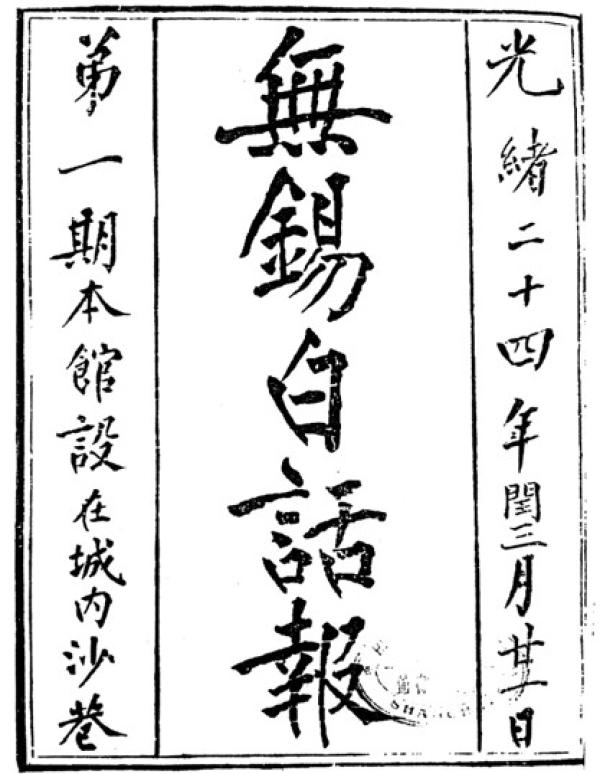 光緒二十四年閏三月廿一日
無錫白話報
第一期本館設在城內沙巷
SHANGH